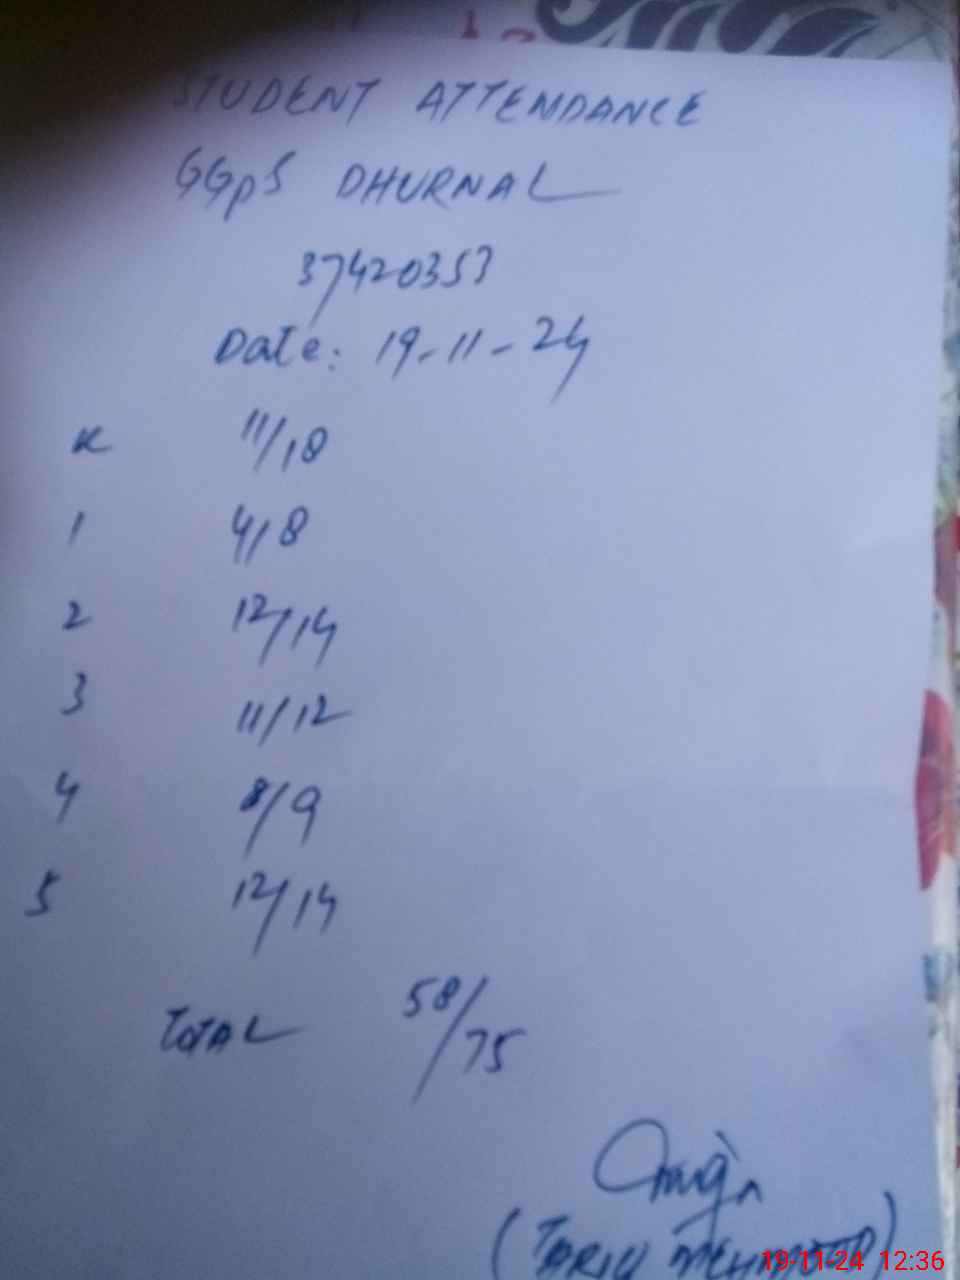 STUDENT ATTENDANCE
GGPS DHURNAL
37420353
Date: 19-11-24
K 11/18
1 4/8
2 12/14
3 11/12
4 8/9
5 12/14
TOTAL 58/75
(TARIQ MEHMOOD)
19-11-24 12:36